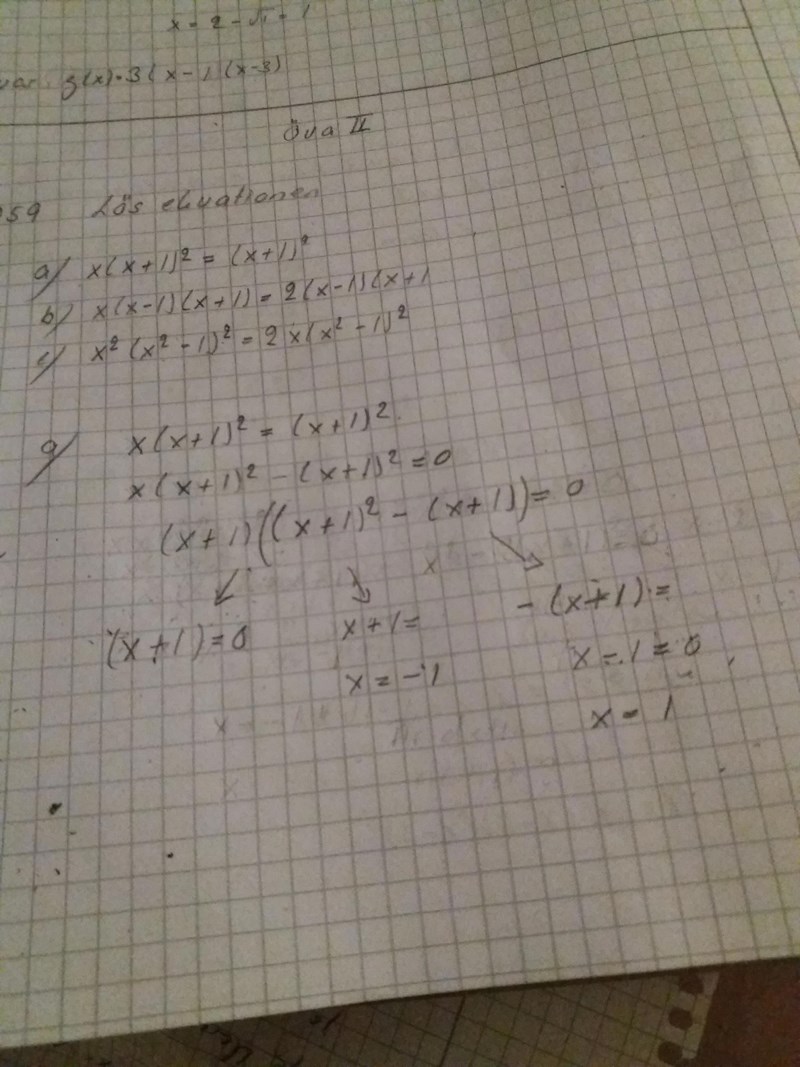 x = 2 - √1 = 1
g(x) = 3(x-1)(x-3)
Öva II
59 Lös ekvationen
a) x(x+1)² = (x+1)²
b) x(x-1)(x+1) = 2(x-1)(x+1
c) x²(x²-1)² = 2x(x²-1)²
a) x(x+1)² = (x+1)²
x(x+1)² - (x+1)² = 0
(x+1)((x+1)² - (x+1)) = 0
(x+1) = 0 x+1= -(x+1)=
x = -1 x-1=0
x = 1